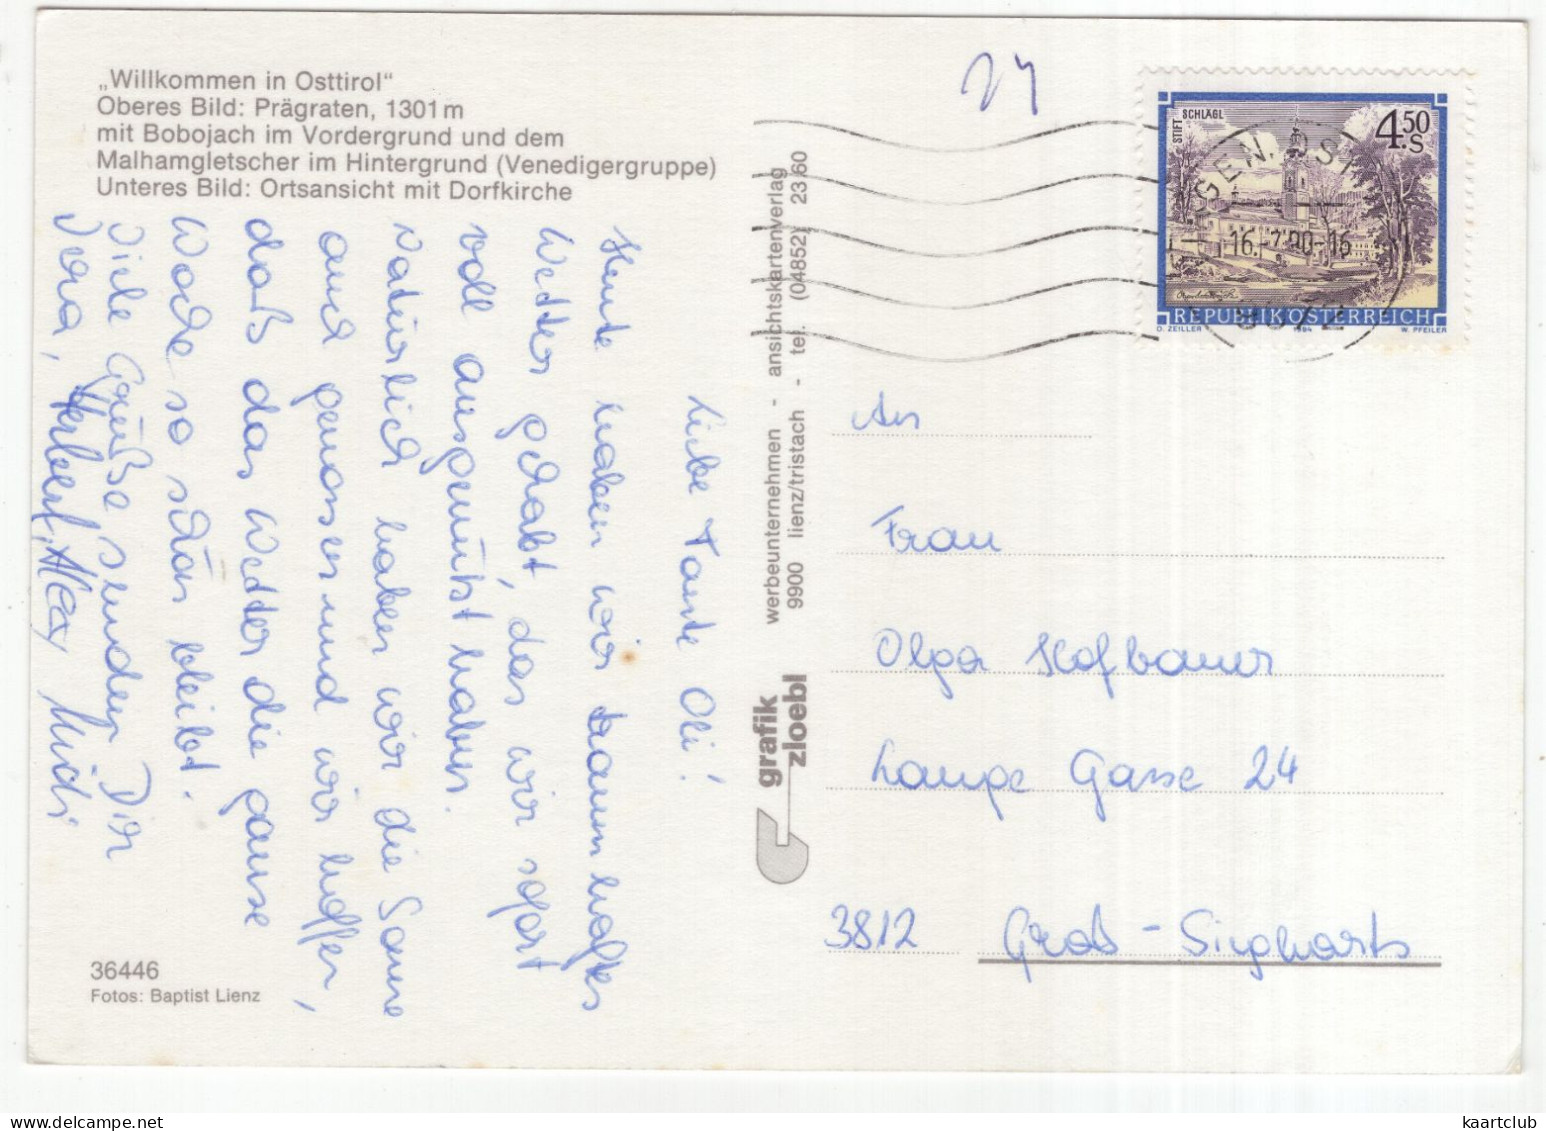 „Willkommen in Osttirol“
Oberes Bild: Prägraten, 1301 m
mit Bobojach im Vordergrund und dem
Malhamgletscher im Hintergrund (Venedigergruppe)
Unteres Bild: Ortsansicht mit Dorfkirche
24
STIFT SCHLÄGL
4.50 S
16.-7.90-16
REPUBLIK ÖSTERREICH
D. ZEILLER 1984 W. PFEILER
Liebe Tante Oli!
Heute haben wir traumhaftes
Wetter gehabt, das wir sofort
voll ausgenützt haben.
Natürlich haben wir die Sonne
auch genossen und wir hoffen,
daß das Wetter die ganze
Woche so schön bleibt.
Viele Grüße senden Dir
Vera, Herbert, Alex, Michi
werbeunternehmen - ansichtskartenverlag
9900 lienz/tristach - tel. (04852) 23 60
grafik
zloebl
An
Frau
Olga Hofbauer
Lange Gasse 24
3812 Groß-Siegharts
36446
Fotos: Baptist Lienz
kaartclub